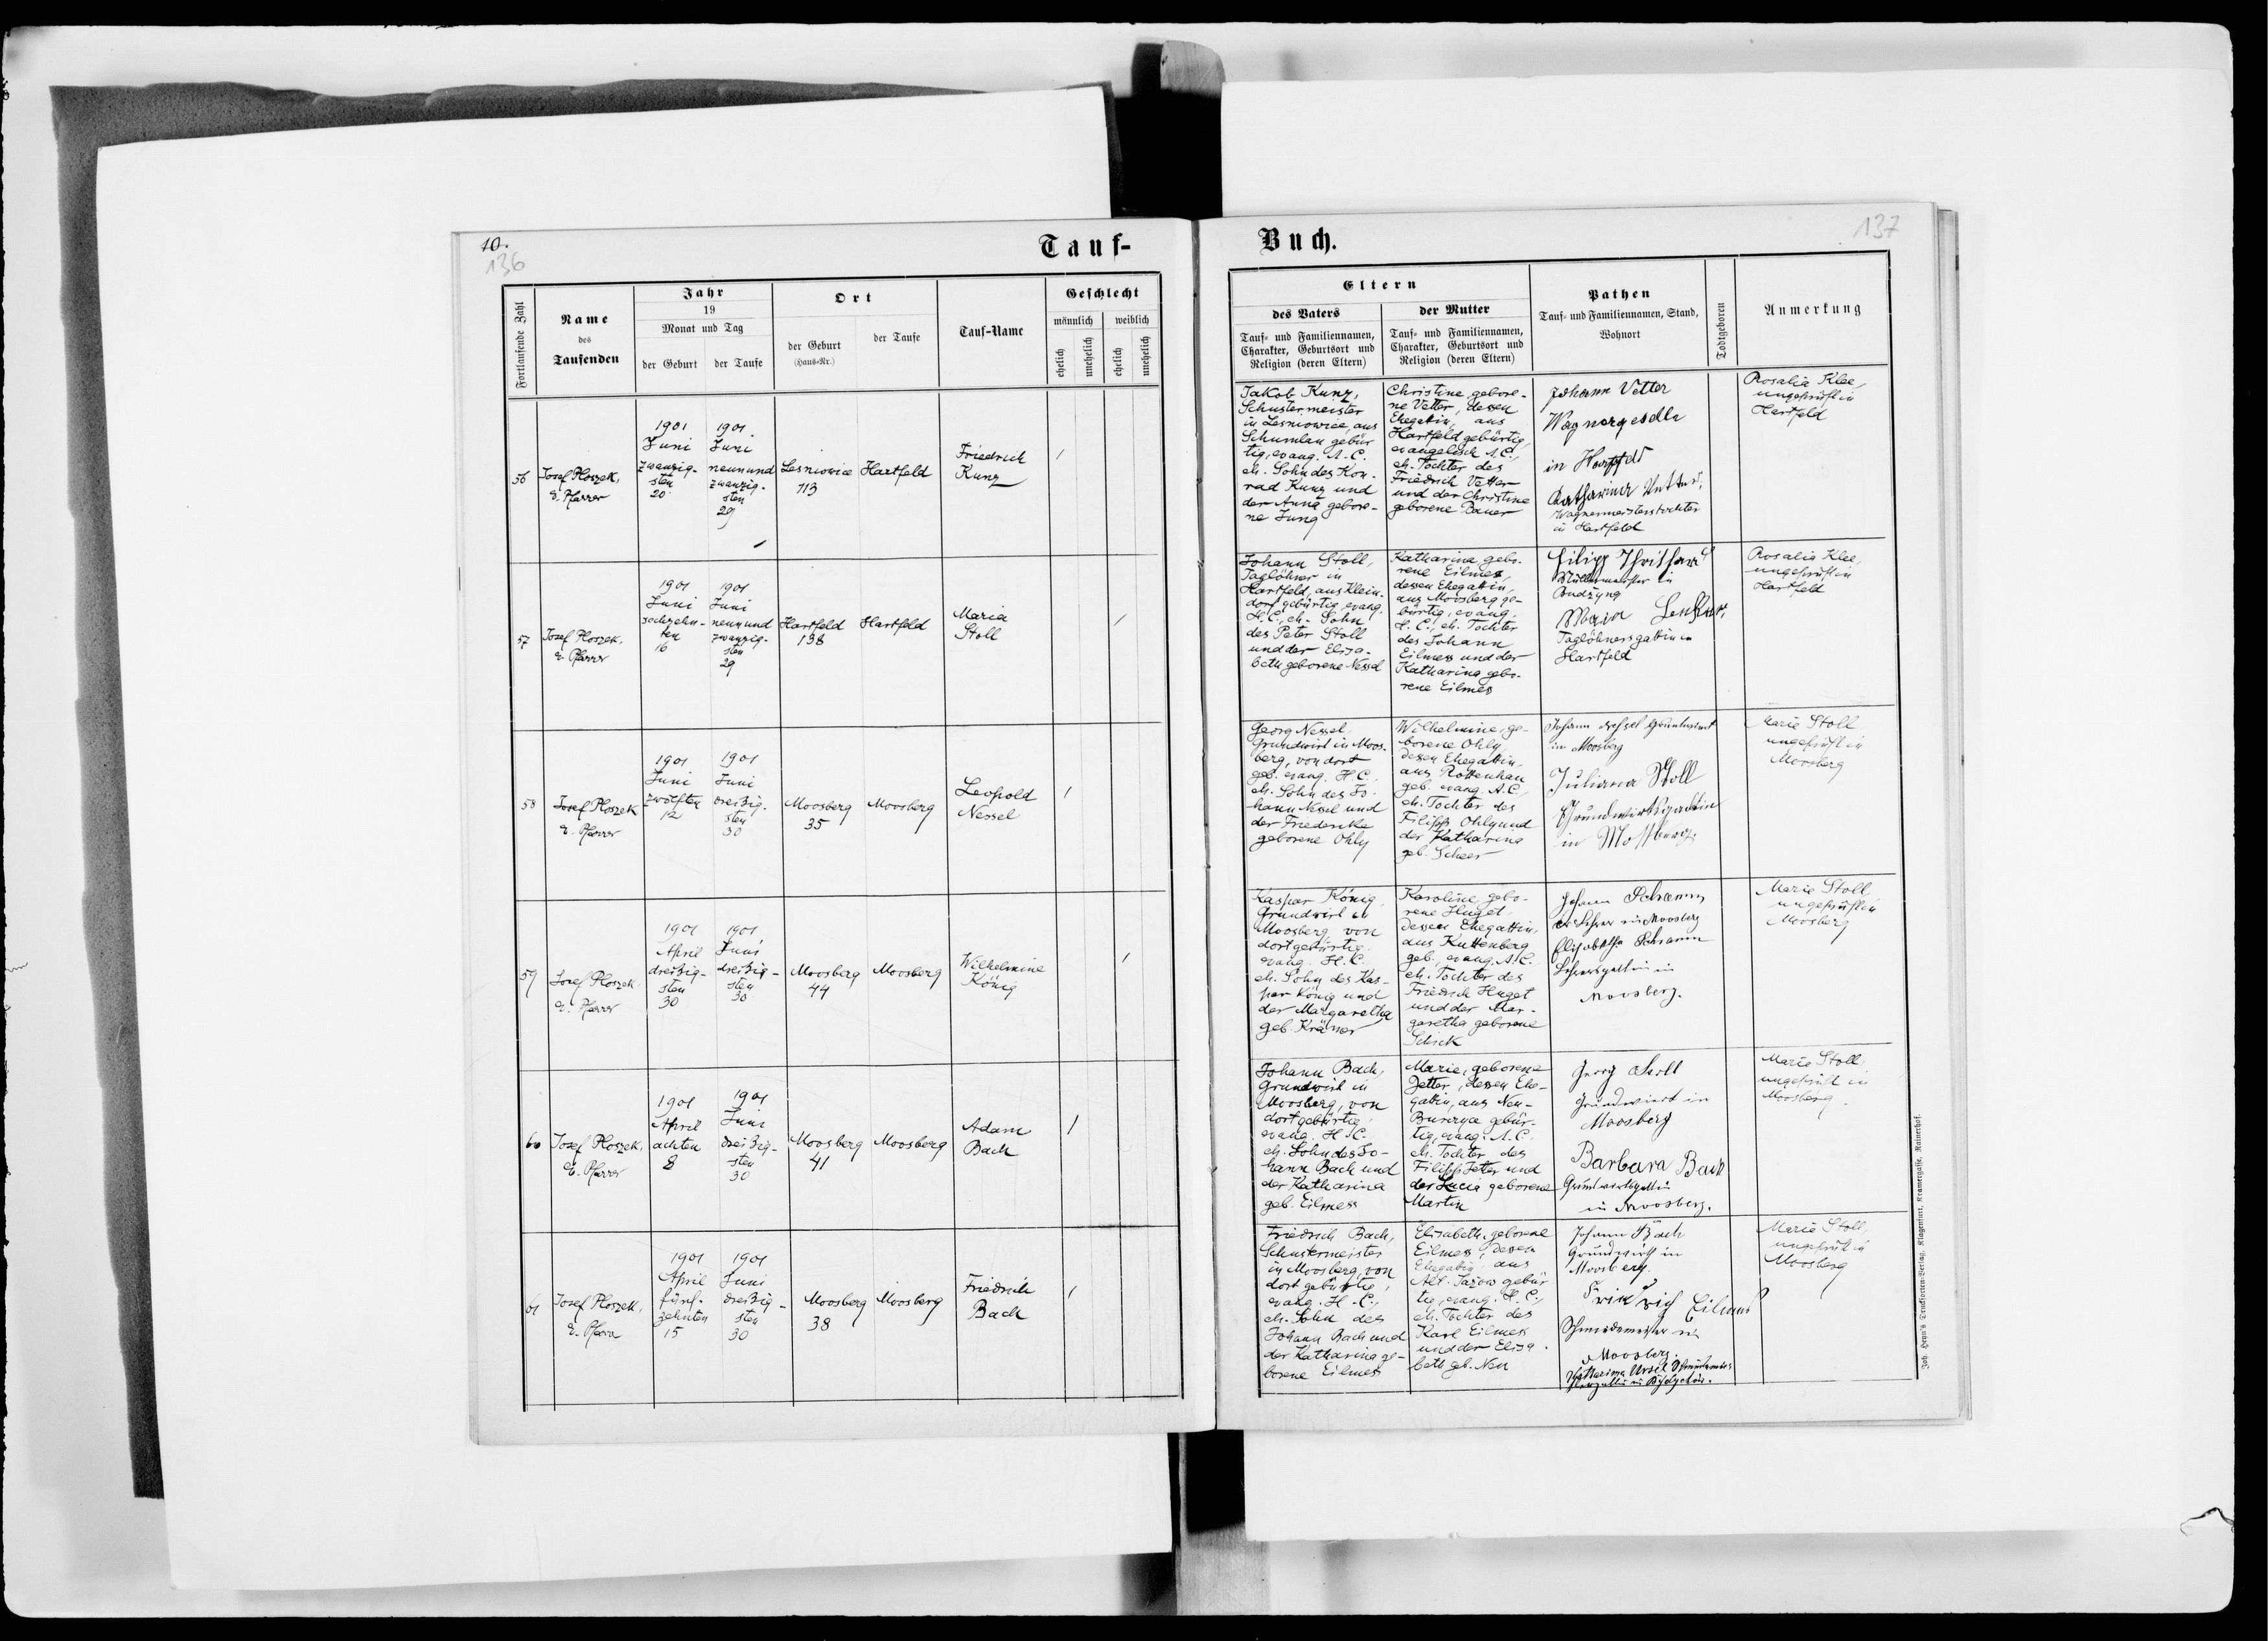 10.
136
Tauf-
Fortlaufende Zahl
Name
des
Taufenden
Jahr
19
Monat und Tag
der Geburt
der Taufe
Ort
der Geburt
(Haus-Nr.)
der Taufe
Tauf-Name
Geschlecht
männlich
weiblich
ehelich
unehelich
ehelich
unehelich
56
Josef Ploszek,
e. Pfarrer
1901
Juni
zwanzig-
sten
20
1901
Juni
neunund
zwanzig-
sten
29
Lesniowice
113
Hartfeld
Friedrich
Kunz
57
Josef Ploszek,
e. Pfarrer
1901
Juni
sechzehn-
ten
16
1901
Juni
neunund
zwanzig-
sten
29
Hartfeld
138
Hartfeld
Maria
Stoll
58
Josef Ploszek
e. Pfarrer
1901
Juni
zwölften
12
1901
Juni
dreißig-
sten
30
Moosberg
35
Moosberg
Leopold
Nessel
59
Josef Ploszek
e. Pfarrer
1901
April
dreißig-
sten
30
1901
Juni
dreißig-
sten
30
Moosberg
44
Moosberg
Wilhelmine
König
60
Josef Ploszek,
e. Pfarrer
1901
April
achten
8
1901
Juni
dreißig-
sten
30
Moosberg
41
Moosberg
Adam
Bach
61
Josef Ploszek,
e. Pfarrer
1901
April
fünf-
zehnten
15
1901
Juni
dreißig-
sten
30
Moosberg
38
Moosberg
Friedrich
Bach
Buch.
137
Eltern
des Vaters
Tauf- und Familiennamen,
Charakter, Geburtsort und
Religion (deren Eltern)
der Mutter
Tauf- und Familiennamen,
Charakter, Geburtsort und
Religion (deren Eltern)
Pathen
Tauf- und Familiennamen, Stand,
Wohnort
Todtgeboren
Anmerkung
Jakob Kunz,
Schustermeister
in Lesniowice, aus
Schumlau gebür
tig, evang. A. C.
eh. Sohn des Kon-
rad Kunz und
der Anna gebore-
ne Jung
Christine gebore-
ne Vetter, dessen
Ehegattin, aus
Hartfeld gebürtig,
evangelisch A. C.,
eh. Tochter des
Friedrich Vetter
und der Christine
geborene Bauer
Johann Vetter
Wagnergeselle
in Hartfeld
Katharina Vetter,
Wagnermeisterstochter
in Hartfeld
Rosalia Klee,
ungeprüft in
Hartfeld
Johann Stoll,
Taglöhner in
Hartfeld, aus Klein-
dorf gebürtig, evang.
H. C., eh. Sohn
des Peter Stoll
und der Elisa-
beth geborene Nessel
Katharina, gebo-
rene Eilmes,
dessen Ehegattin,
aus Moosberg ge-
bürtig, evang.
H. C., eh. Tochter
des Johann
Eilmes und der
Katharina gebo-
rene Eilmes
Filipp
Müllermeister in
Taglöhnersgattin in
Hartfeld
Rosalia Klee,
ungeprüft in
Hartfeld
Georg Nessel,
Grundwirt in Moos-
berg, von dort
geb. evang. H. C.,
eh. Sohn des Jo-
hann Nessel und
der Friederike
geborene Ohly
Wilhelmine, ge-
borene Ohly,
dessen Ehegattin,
aus Rottenhan
geb. evang. A. C.,
eh. Tochter des
Filipp Ohly und
der Katharina
geb. Scheer
Johann Nessel Grundwirt
in Moosberg
Juliana Stoll
Grundwirtsgattin
in Mossberg.
Marie Stoll
ungeprüft in
Moosberg
Kaspar König,
Grundwirt in
Moosberg, von
dort gebürtig.
evang. H. C.
eh. Sohn des Kas-
par König und
der Margaretha
geb. Krämer
Karoline, gebo-
rene Huget,
dessen Ehegattin,
aus Kuttenberg
geb., evang. A. C.
eh. Tochter des
Friedrich Huget
und der Mar-
garetha geborene
Schick
Johann Schramm
Lehrer in Moosberg
Elisabetha Schramm
Lehrersgattin in
Moosberg.
Marie Stoll
ungeprüft in
Moosberg
Johann Bach,
Grundwirt in
Moosberg, von
dort gebürtig,
evang. H. C.
eh. Sohn des Jo-
hann Bach und
der Katharina
geb. Eilmes
Marie, geborene
Jetter, dessen Ehe-
gattin, aus Neu-
Burczyce gebür-
tig, evang. A. C.
eh. Tochter des
Filipp Jetter und
der Lucia geborene
Martin
Georg Stoll
Grundwirt in
Moosberg
Barbara Bach
Grundwirtsgattin
in Moosberg.
Marie Stoll
ungeprüft in
Moosberg.
Friedrich Bach,
Schustermeister
in Moosberg, von
dort gebürtig,
evang. H. C.,
eh. Sohn des
Johann Bach und
der Katharina ge-
borene Eilmes
Elisabeth, geborene
Eilmes, dessen
Ehegattin aus
Alt-Jazow gebür
tig, evang. H. C.,
eh. Tochter des
Karl Eilmes
und der Elisa-
beth geb. Neu
Johann Bach
Grundwirth in
Moosberg.
Friedrich Eilmes
Schmiedemeister in
Moosberg.
Katharina
Marie Stoll,
ungeprüft in
Moosberg
Joh. Heyn's Drucksorten-Verlag, Klagenfurt, Kramergasse, Rainerhof.